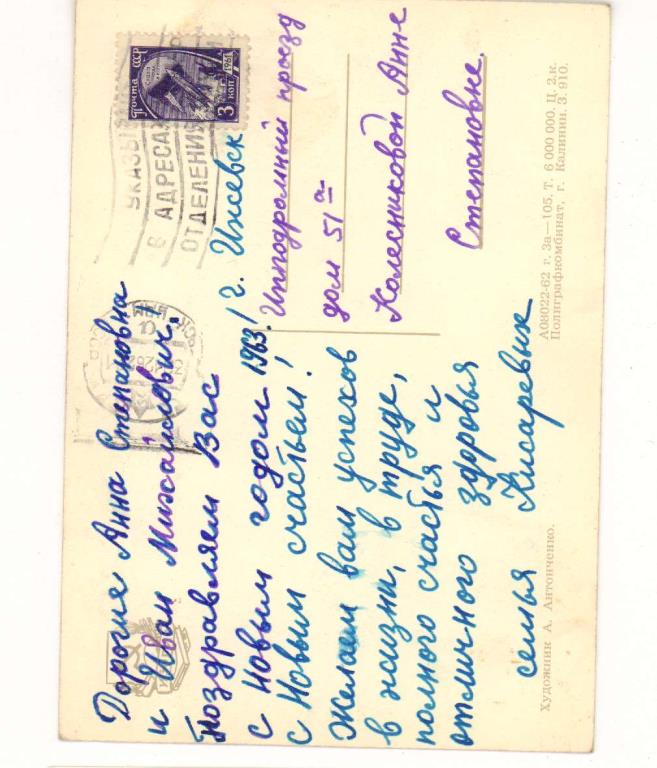 Дорогие Анна Степановна
и Иван Михайлович!
Поздравляем Вас
с Новым годом 1963!
с Новым счастьем!
Желаем вам успехов
в жизни, в труде,
полного счастья и
отличного здоровья
семья Кисаревых
Художник А. Антонченко.
Почта СССР
1961
3 коп
УКАЗЫ
В АДРЕСАХ
ОТДЕЛЕНИЯ
г. Ижевск
Ипподромный проезд
дом 51а
Колесниковой Анне
Степановне.
А08022-62 г. За—105. Т. 6 000 000. Ц. 2 к.
Полиграфкомбинат, г. Калинин. З. 910.